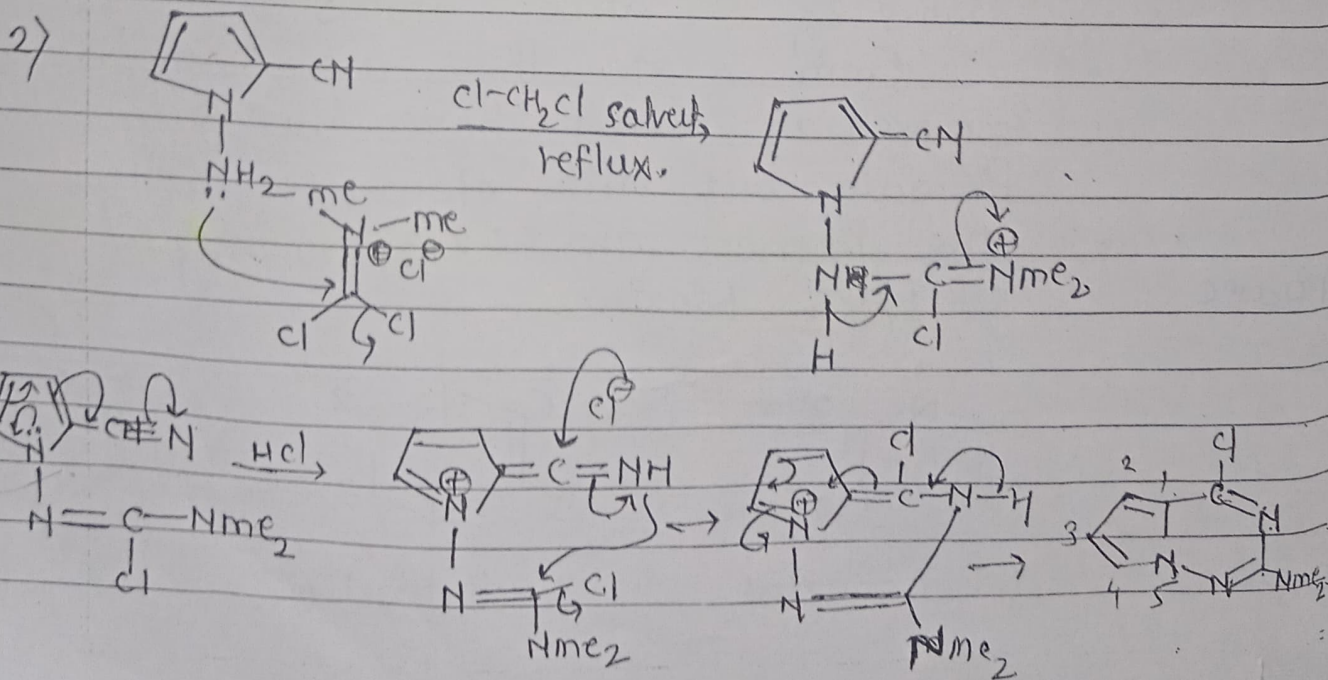 2)
CN
N
NH2
me
N-me
⊕ Cl⊖
Cl Cl
Cl-CH2Cl salvent,
reflux.
CN
N
N — C = NMe2
⊕
H Cl
C≡N
N
N = C — Nme2
Cl
HCl
Cl⊖
= C = NH
⊕
N
N = Cl
Nme2
Cl
= C — N — H
⊕
N
N
Nme2
Cl
2 1 C N
3
N
4 5 N Nme2